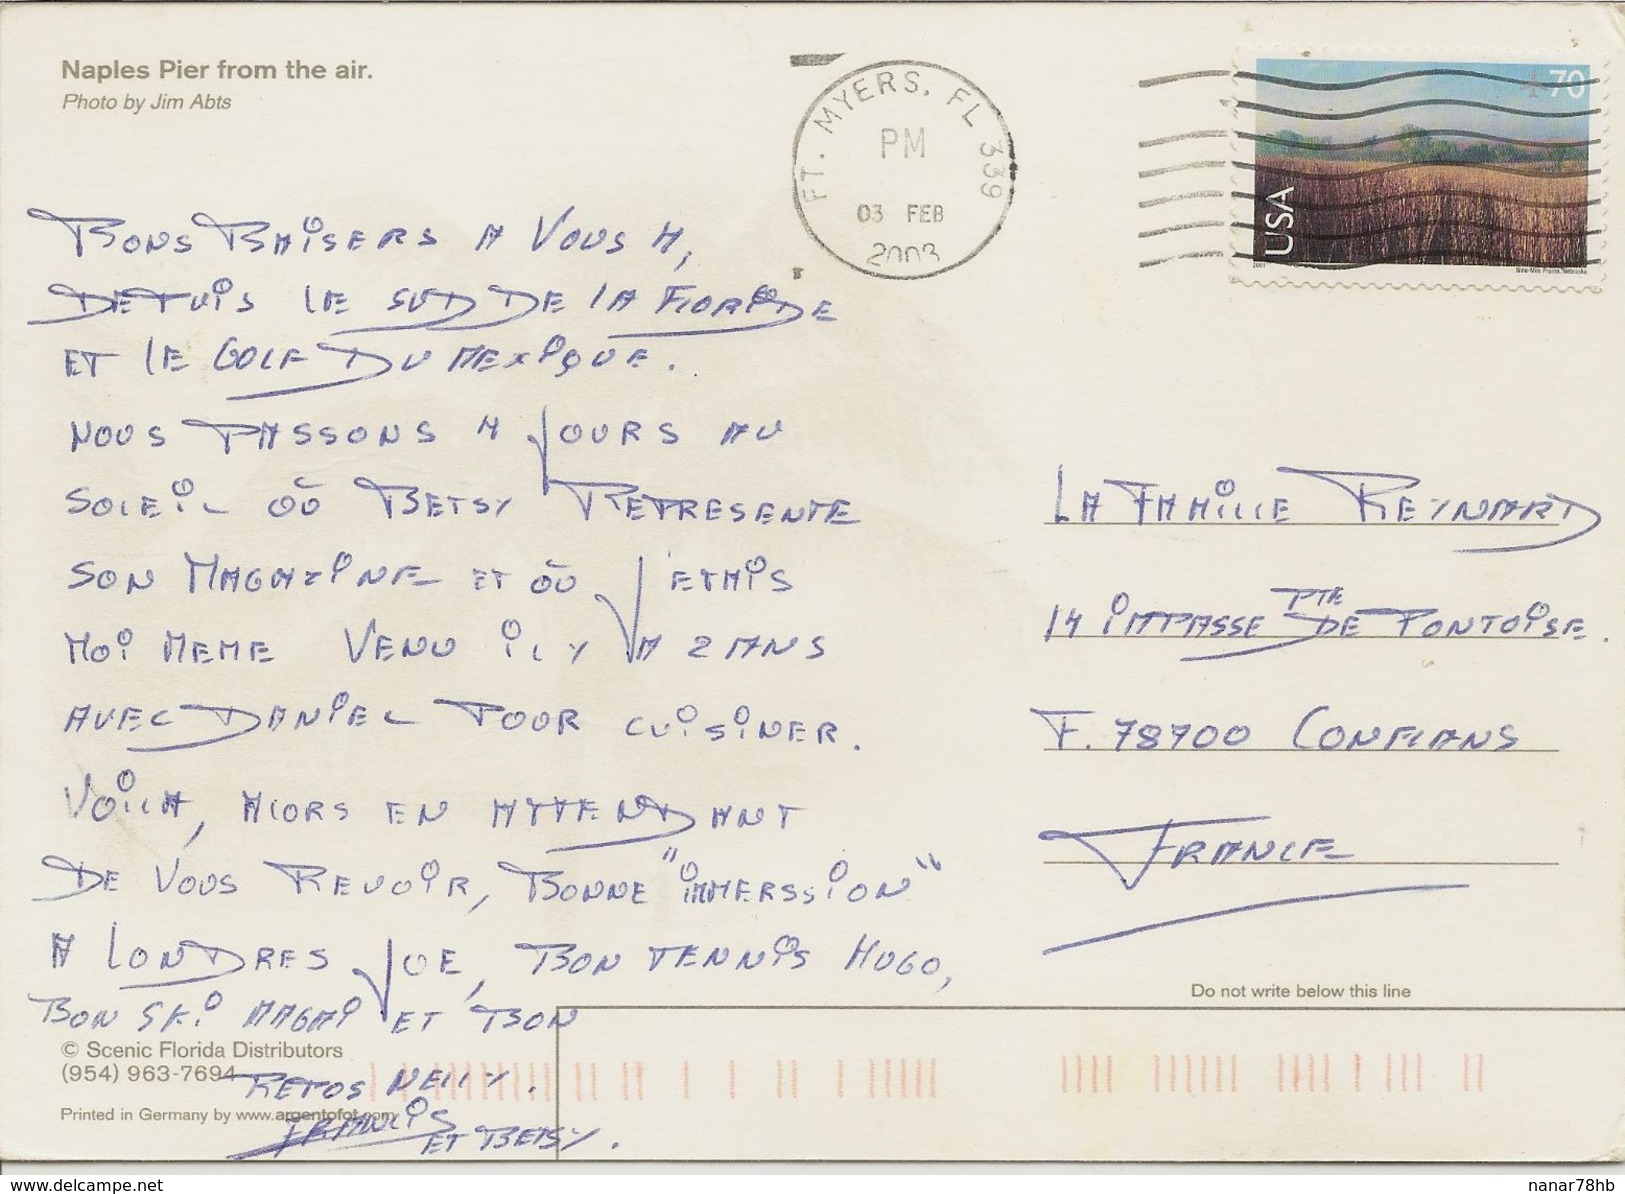 Naples Pier from the air.
Photo by Jim Abts
FT. MYERS, FL 339
PM
03 FEB
2003
70
USA
2001
Nine-Mile Prairie, Nebraska
BONS BAISERS A VOUS 4,
DEPUIS LE SUD DE LA FLORIDE
ET LE GOLF DU MEXIQUE.
NOUS PASSONS 4 JOURS AU
SOLEIL OÙ BETSY REPRESENTE
SON MAGAZINE ET OÙ J'ETAIS
MOI MEME VENU IL Y A 2 ANS
AVEC DANIEL POUR CUISINER.
VOILA, ALORS EN ATTENDANT
DE VOUS REVOIR, BONNE "IMMERSSION"
A LONDRES JOE, BON TENNIS HUGO,
BON SKI MAGAI ET BON
REPOS NELLY.
FRANCIS
ET BETSY.
LA FAMILLE REYNARD
14 IMPASSE PTE DE PONTOISE.
F. 78700 CONFLANS
FRANCE
Do not write below this line
© Scenic Florida Distributors
(954) 963-7694
Printed in Germany by www.argentofot.com
www.delcampe.net
nanar78hb